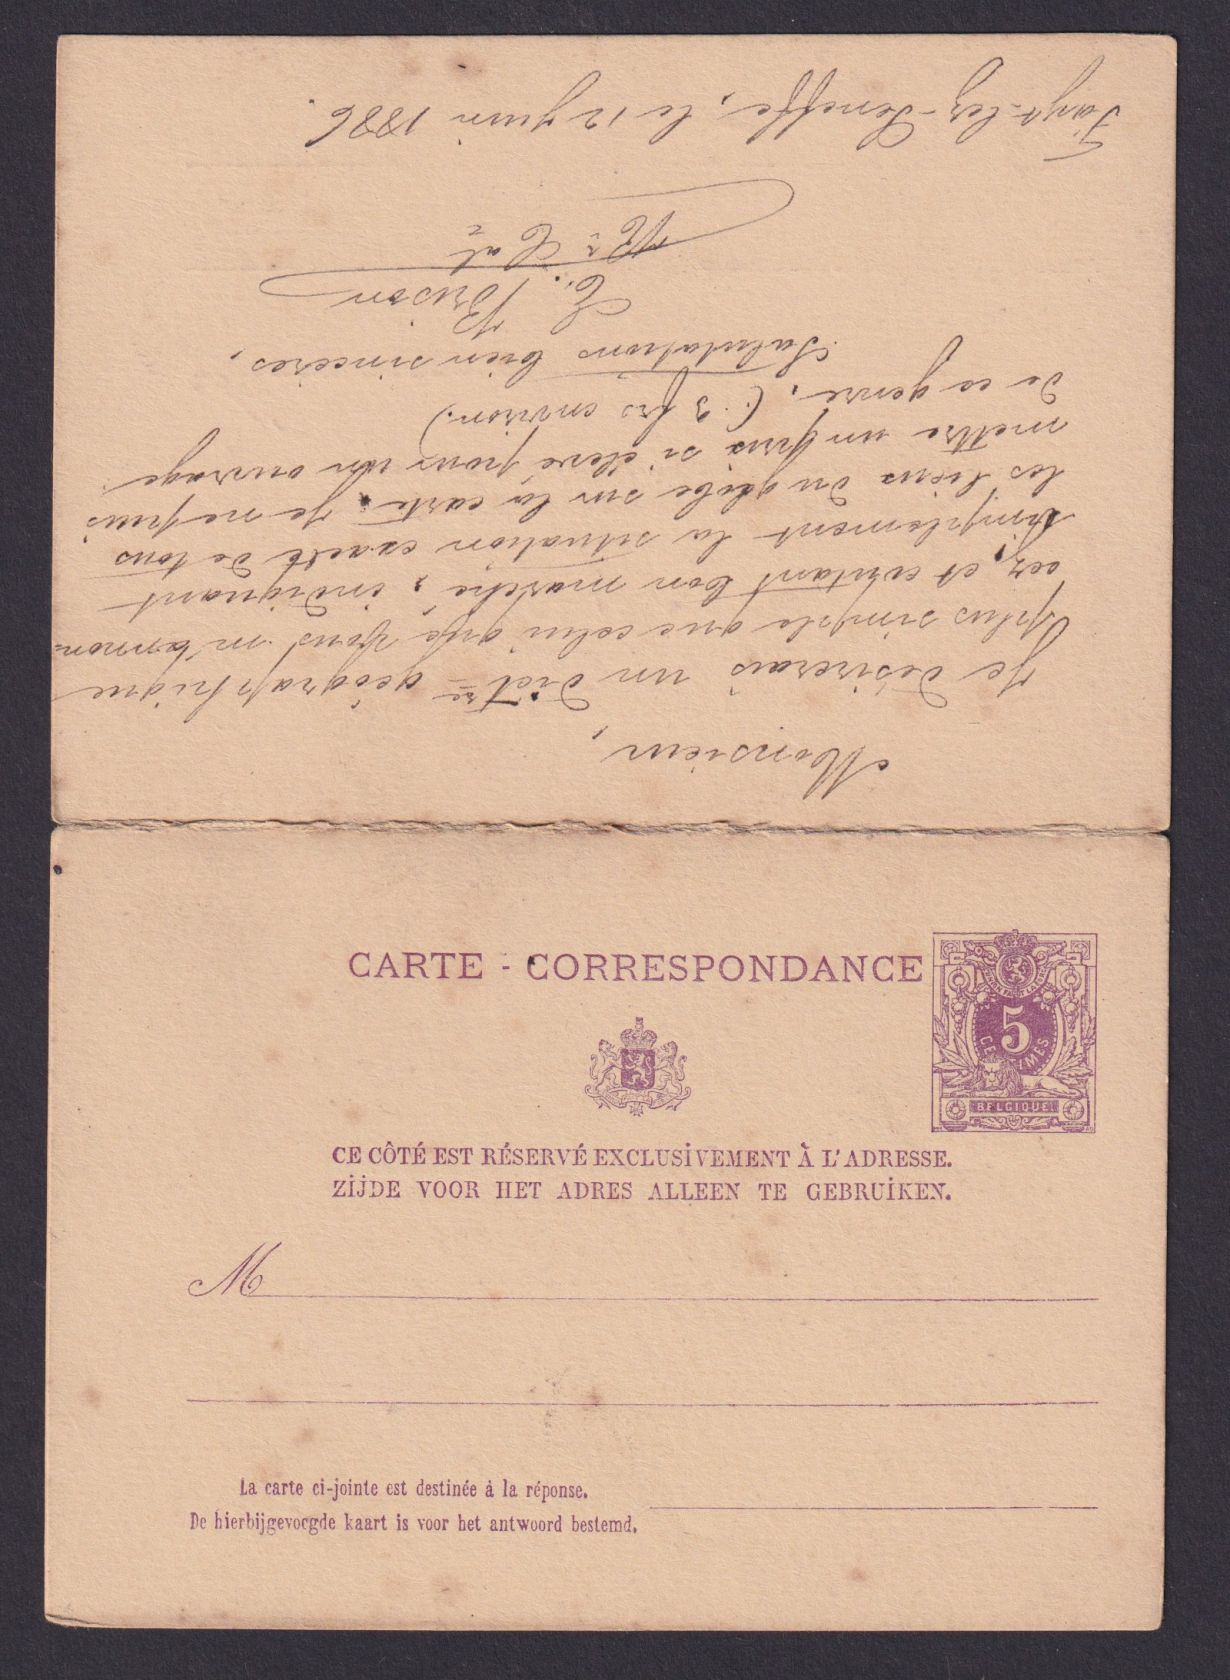 Monsieur,
Je désirerais un dict^re géographique
plus simple que celui que vous m'annon=
cez, et coûtant bon marché, indiquant
simplement la situation exacte de tous
les lieux du globe sur la carte. Je ne puis
mettre un prix si élevé pour un ouvrage
de ce genre, (3 frs environ.)
Salutations bien sincères,
Brison
Fayt-lez-Seneffe, le 12 Juin 1886.
CARTE - CORRESPONDANCE
5
CENTIMES
BELGIQUE
CE CÔTÉ EST RÉSERVÉ EXCLUSIVEMENT À L'ADRESSE.
ZIJDE VOOR HET ADRES ALLEEN TE GEBRUIKEN.
M
La carte ci-jointe est destinée à la réponse.
De hierbijgevoegde kaart is voor het antwoord bestemd.